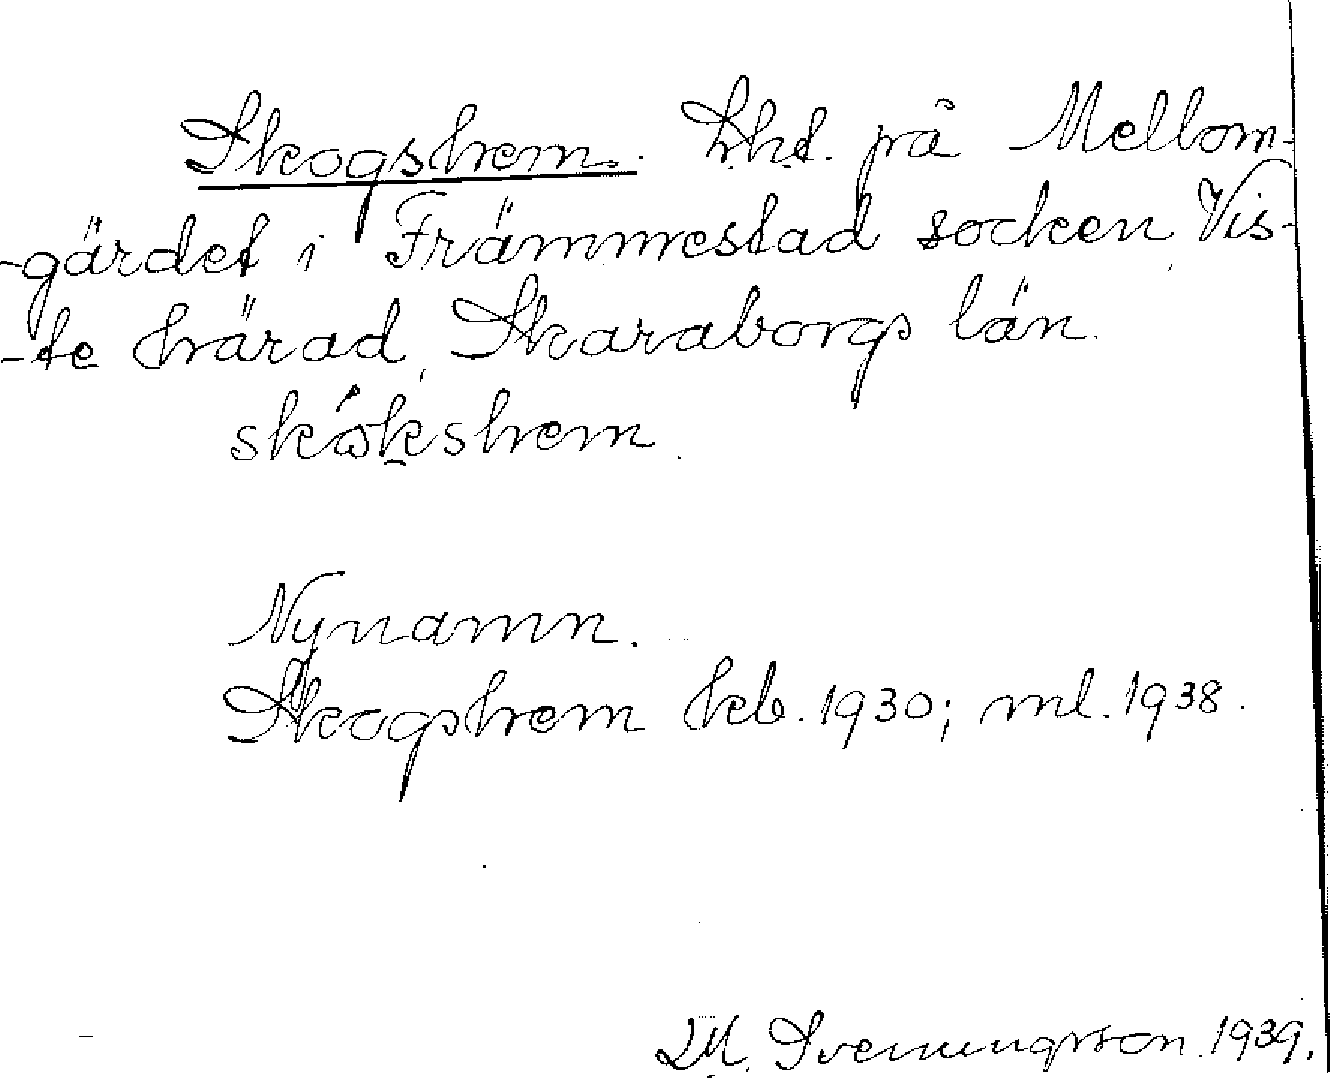 Skogshem. Lht. på Mellom-
-gärdet i Främmestad socken, Vis-
-te härad, Skaraborgs län.
skókshem.
Nynamn.
Skogshem kb. 1930; ml. 1938.
M. Svenungsson. 1939.